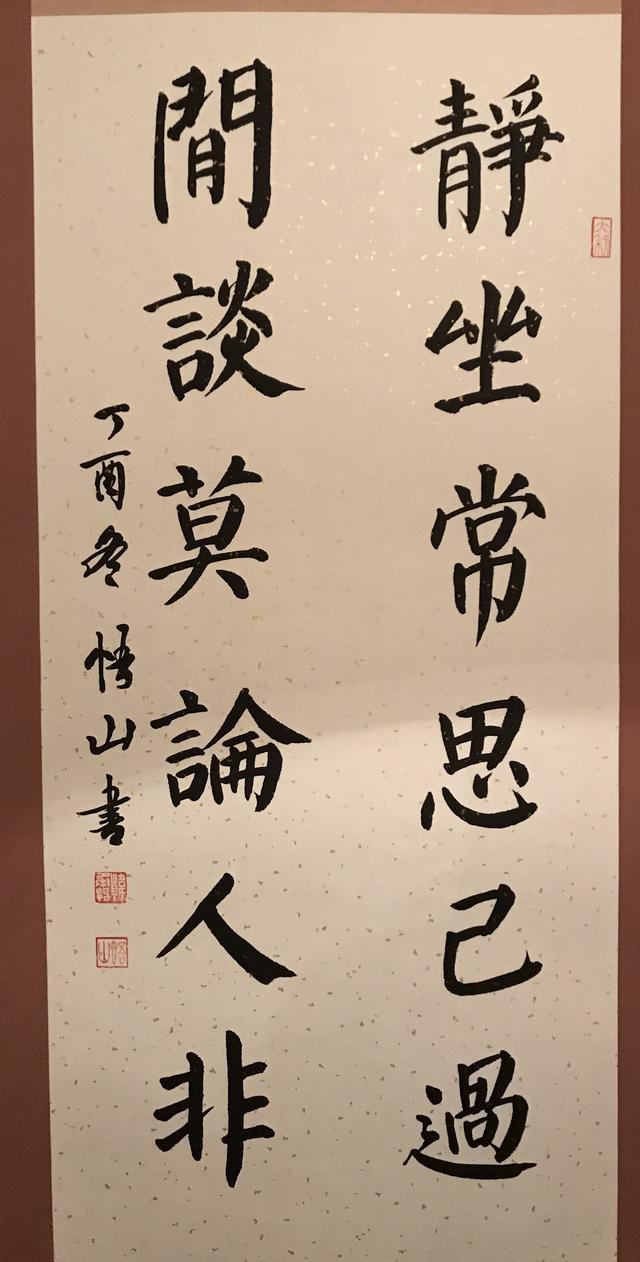 靜坐常思己過
閒談莫論人非
丁酉冬悟山書